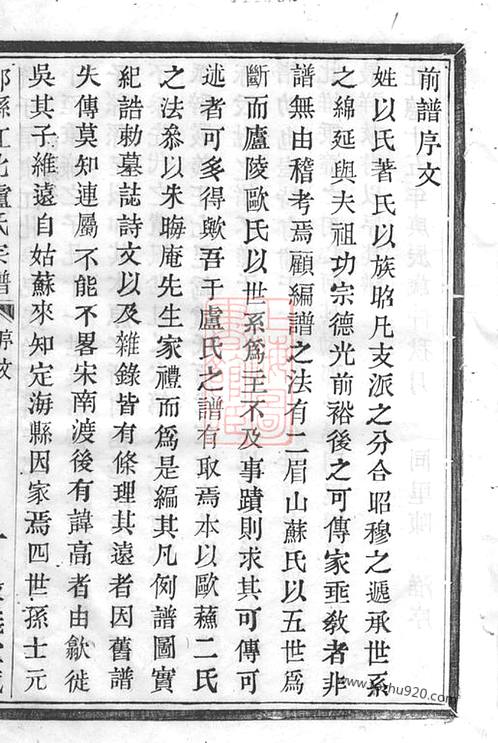 前譜序文
姓以氏著氏以族昭凡支派之分合昭穆之遞承世系
之綿延與夫祖功宗德光前裕後之可傳家垂敎者非
譜無由稽考焉顧編譜之法有二眉山蘇氏以五世爲
斷而廬陵歐氏以世系爲主不及事蹟則求其可傳可
述者可多得歟吾于盧氏之譜有取焉本以歐蘓二氏
之法叅以朱晦庵先生家禮而爲是編其凡例譜圖實
紀誥勅墓誌詩文以及雜錄皆有條理其遠者因舊譜
失傳莫知連屬不能不畧宋南渡後有諱高者由歙徙
吳其子維遠自姑蘇來知定海縣因家焉四世孫士元
縣江北盧氏宗譜 序文 一